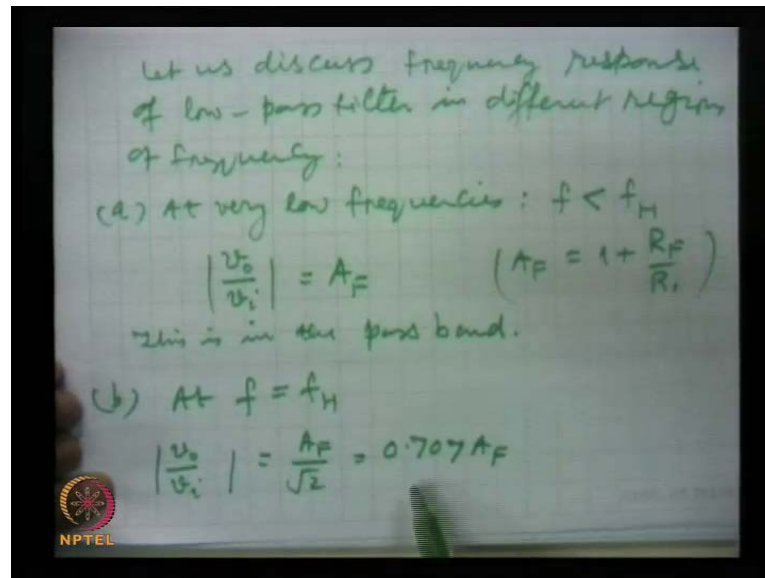 Let us discuss frequency response
of low-pass filter in different region
of frequency:
(a) At very low frequencies: f < f_H
|v_o/v_i| = A_F (A_F = 1 + R_F/R_1)
This is in the pass band.
(b) At f = f_H
|v_o/v_i| = A_F/√2 = 0.707 A_F
NPTEL